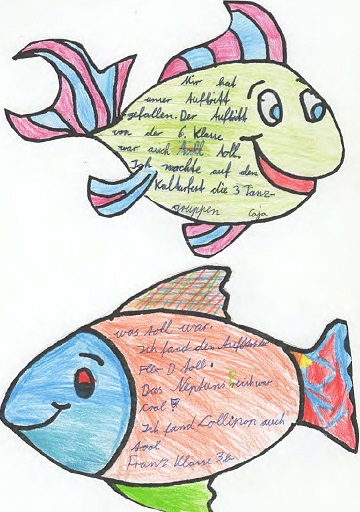 Mir hat
euer Auftritt
gefallen. Der Auftritt
von der 6. Klasse
war auch toll.
Ich mochte auf dem
Kulturfest die 3 Tanz-
gruppen
Caja
was toll war.
Ich fand den
toll.
Das Neptuns
cool
Ich fand Lollipop auch
tool
Franz Klasse 3b